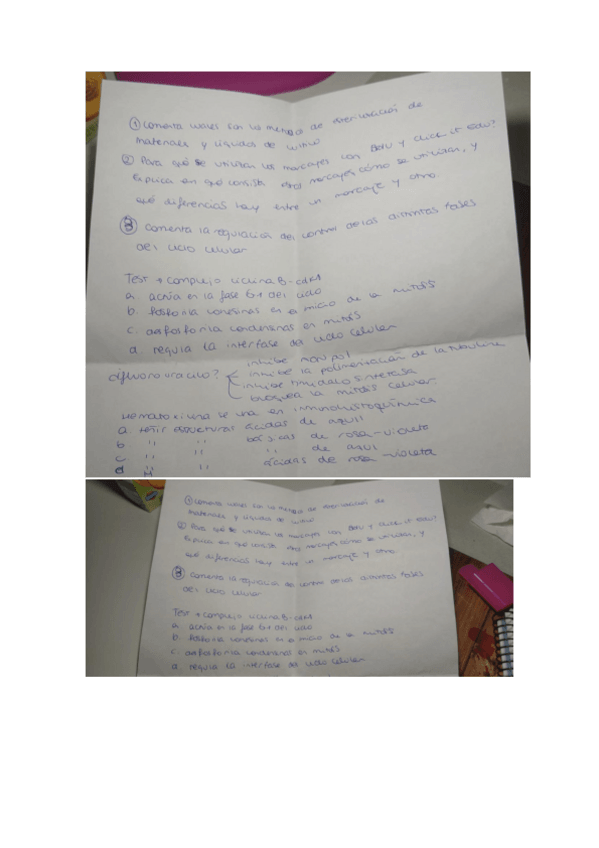 ① Comenta cuales son los metodos de esterilización de
materiales y líquidos de cultivo
② Para qué se utilizan los marcajes con BrdU y Click it EdU?
Explica en qué consiste estos marcajes cómo se utilizan, y
qué diferencias hay entre un marcaje y otro.
③ Comenta la regulación del control de las distintas fases
del ciclo celular
Test → complejo ciclina B-cdk1
a. actúa en la fase G1 del ciclo
b. fosforila condensinas en el inicio de la mitosis
c. desfosforila condensinas en mitosis
d. regula la interfase del ciclo celular
5fluorouracilo?
inhibe mon pol
inhibe la polimerización de la tubulina
inhibe timidilato sintetasa
bloquea la mitosis celular
Hematoxilina se una en inmunohistoquímica
a. teñir estructuras ácidas de azul
b " " básicas de rosa-violeta
c. " " " de azul
d " " ácidas de rosa-violeta
① Comenta cuales son los metodos de esterilización de
materiales y líquidos de cultivo
② Para qué se utilizan los marcajes con BrdU y Click it EdU?
Explica en qué consiste estos marcajes cómo se utilizan, y
qué diferencias hay entre un marcaje y otro
③ Comenta la regulación del control de las distintas fases
del ciclo celular
Test → complejo ciclina B-cdk1
a. actúa en la fase G1 del ciclo
b. fosforila condensinas en el inicio de la mitosis
c. desfosforila condensinas en mitosis
d. regula la interfase del ciclo celular